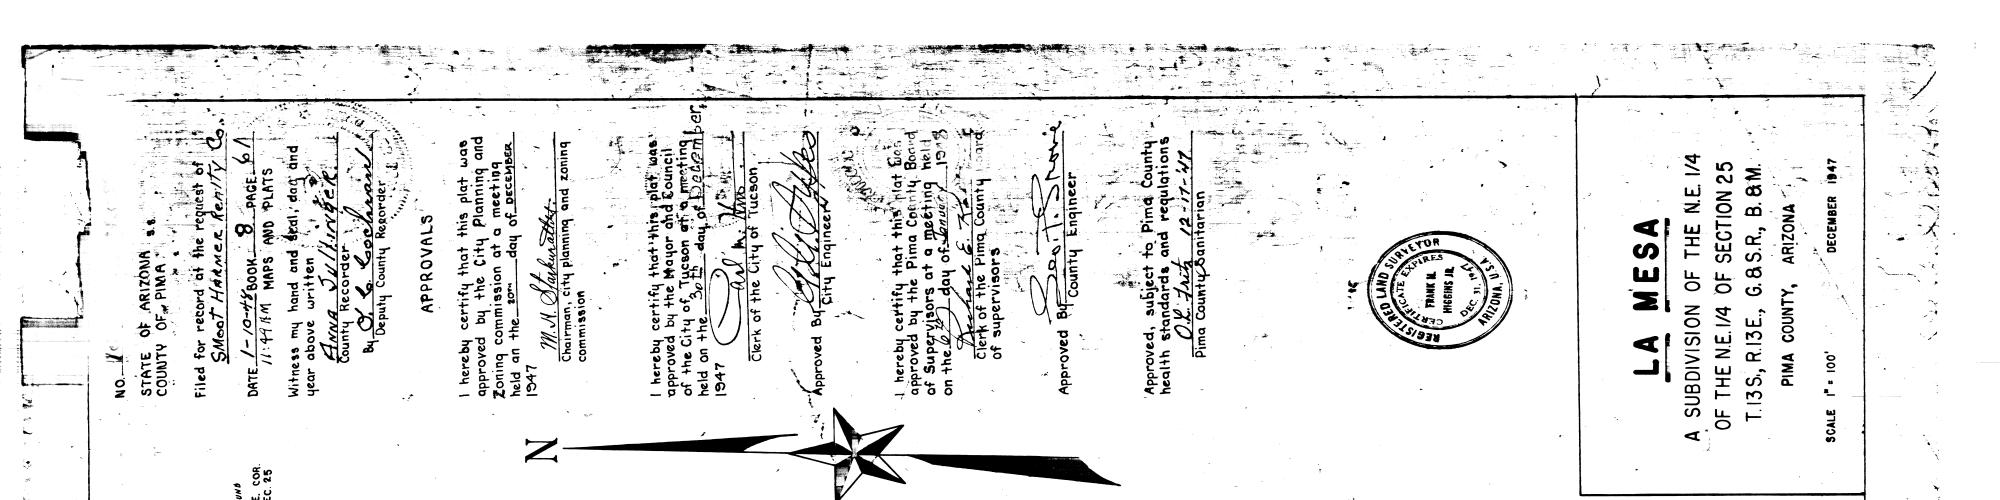 NO.
STATE OF ARIZONA s.s.
COUNTY OF PIMA
Filed for record at the request of
Smoot Harmer Realty Co.
DATE 1-10-48 BOOK 8 PAGE 61
11:49 AM MAPS AND PLATS
Witness my hand and seal, day and
year above written
Anna Sullinger
County Recorder
By
Deputy County Reorder
APPROVALS
I hereby certify that this plat was
approved by the City Planning and
Zoning commission at a meeting
held on the day of DECEMBER
1947
Chairman, city planning and zoning
commission
I hereby certify that this plat was
approved by the Mayor and Council
of the City of Tucson at a meeting
held on the 30th day of December,
1947
Clerk of the City of Tucson
Approved By
City Engineer
I hereby certify that this plat was
approved by the Pima County Board
of Supervisors at a meeting held
on the day of 1948
Clerk of the Pima County Board
of supervisors
Approved By
County Engineer
Approved, subject to Pima County
health standards and regulations
12-17-47
Pima County Sanitarian
REGISTERED LAND SURVEYOR
CERTIFICATE EXPIRES
FRANK N.
HIGGINS JR.
DEC. 31, 1947
ARIZONA, USA
LA MESA
A SUBDIVISION OF THE N.E. 1/4
OF THE N.E. 1/4 OF SECTION 25
T.13 S., R.13 E., G.& S.R., B.& M.
PIMA COUNTY, ARIZONA
SCALE 1" = 100' DECEMBER 1947
N
COR.
SEC. 25